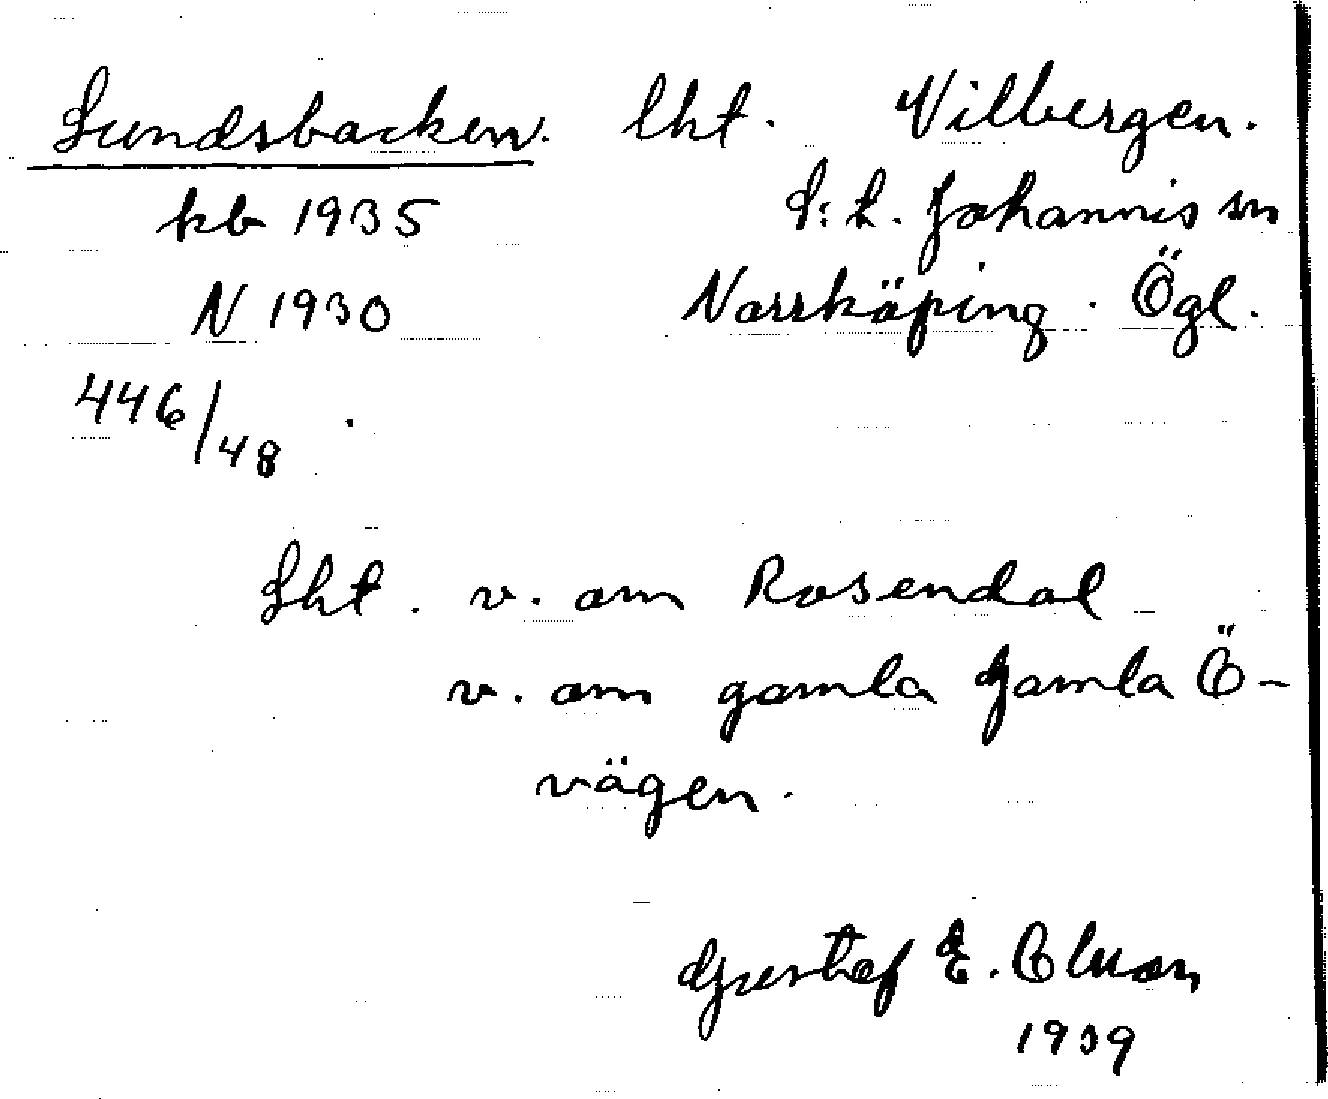 Lundsbacken. lht. Vilbergen.
kb 1935 S:t. Johannis sn
N 1930 Norrköping. Ögl.
446/48
Lht. v. om Rosendal
v. om gamla Gamla Ö-
vägen.
Gustaf E. Olsson
1939